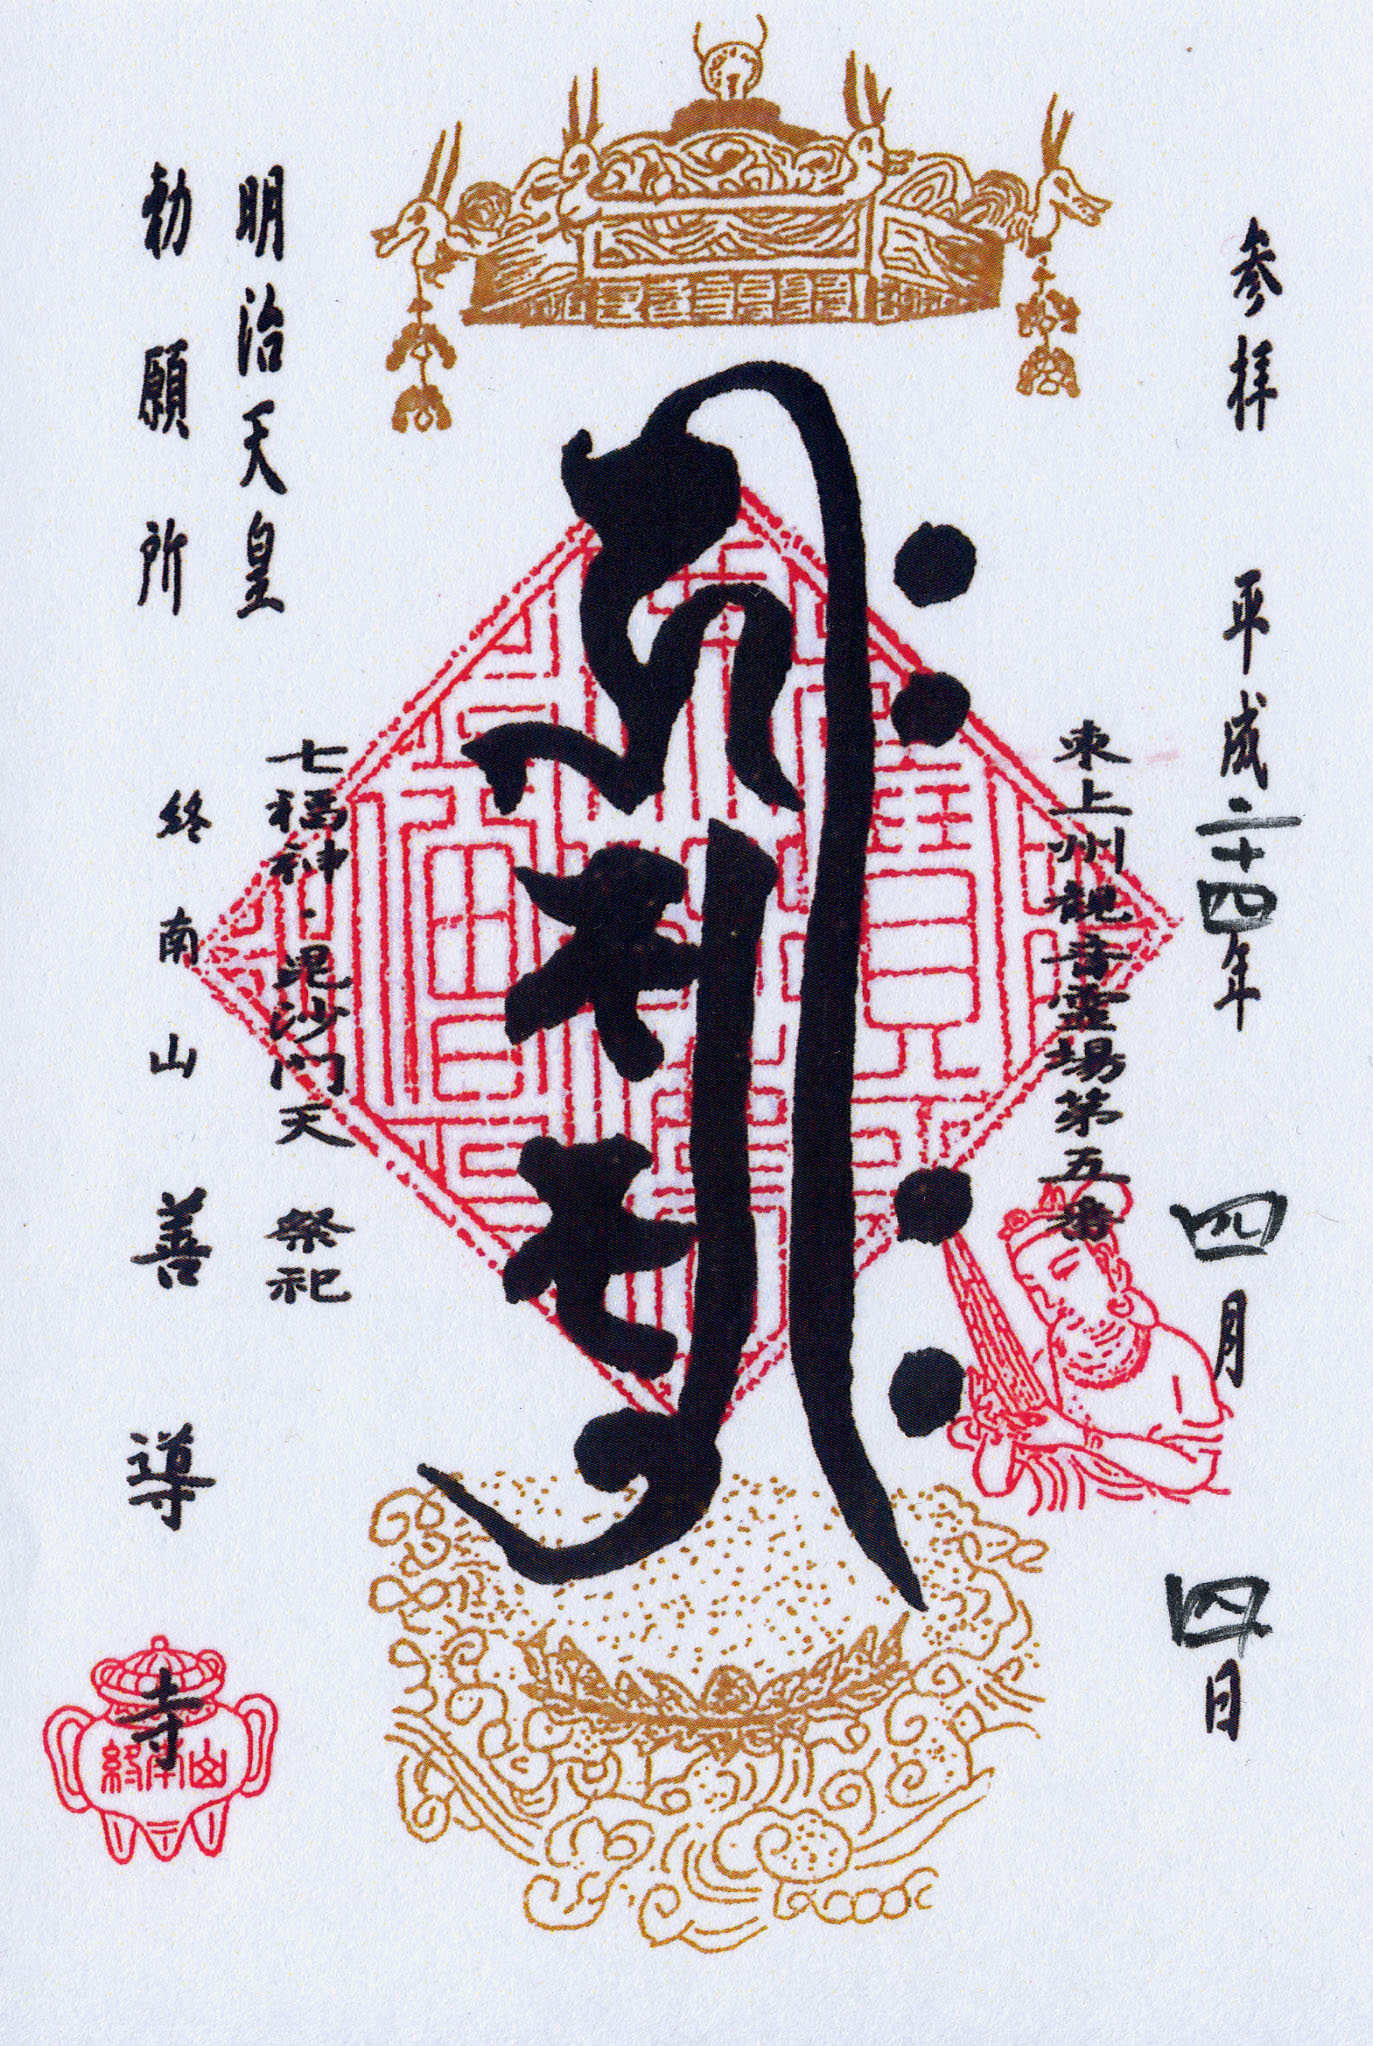 参拝 平成二十四年 四月 四日
東上州観音霊場第五番
ह्रीः
七福神・毘沙門天 祭祀
明治天皇
勅願所
終南山 善導寺
終南山